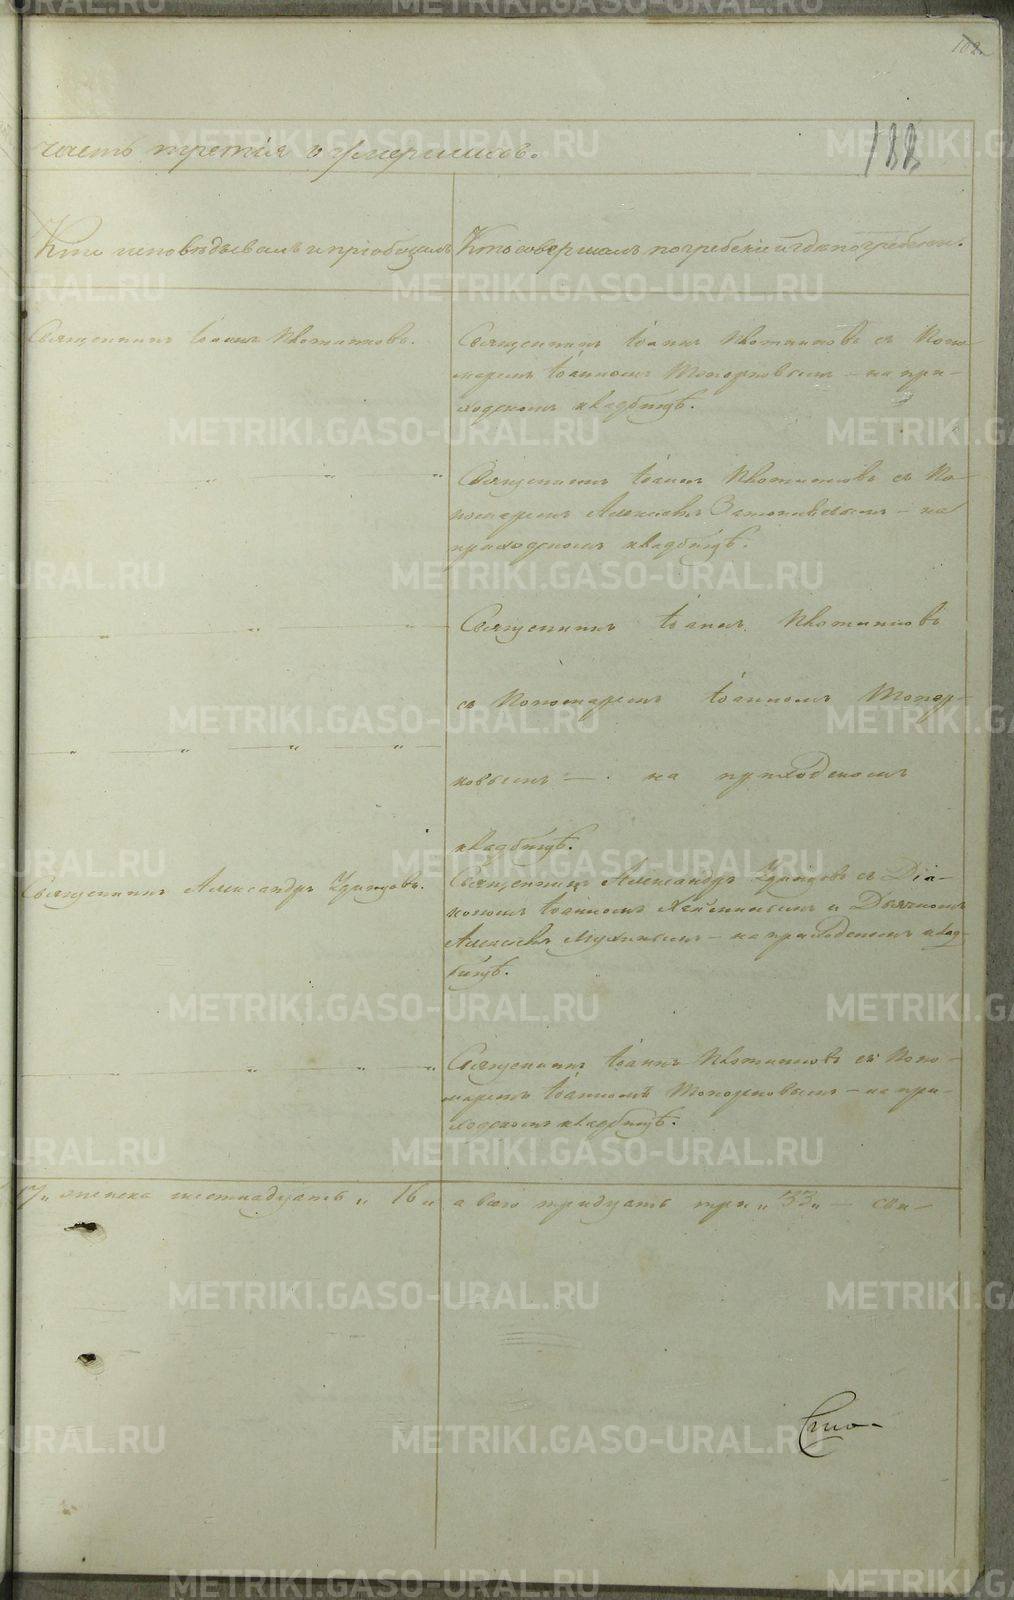 102
188
часть третія о умершихъ.
Кто исповѣдывалъ и пріобщалъ
Кто совершалъ погребеніе и гдѣ погребены.
Священникъ Іоаннъ
Священникъ Іоаннъ съ Поно-
маремъ Іоанномъ Топорковымъ – на при-
ходскомъ кладбищѣ.
Священникъ Іоаннъ съ По-
номаремъ Алексѣемъ – на
приходскомъ кладбищѣ.
Священникъ Іоаннъ
съ Пономаремъ Іоанномъ Топор-
ковымъ – на приходскомъ
кладбищѣ.
Священникъ Александръ Удинцовъ.
Священникъ Александръ Удинцовъ съ Діа-
кономъ Іоанномъ и Дьячкомъ
Алексѣемъ – на приходскомъ клад-
бищѣ.
Священникъ Іоаннъ съ Поно-
маремъ Іоанномъ Топорковымъ – на при-
ходскомъ кладбищѣ.
17„ женска шестнадцать „ 16 „ а всего тридцать три „ 33 „ – сви-
Сто-
METRIKI.GASO-URAL.RU